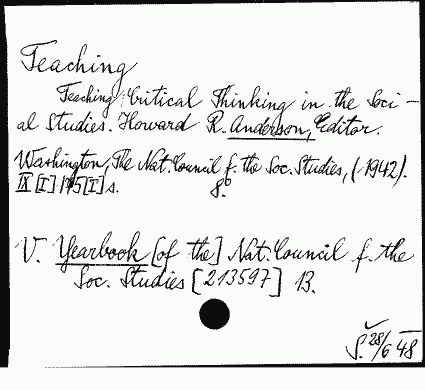 Teaching
Teaching Critical Thinking in the Soci-
al Studies. Howard R. Anderson, Editor.
Washington, The Nat. Council f. the Soc. Studies, (1942).
IX [I] 175 [I] s. 8°
V. Yearbook [of the] Nat. Council f. the
Soc. Studies [213597] B.
S. 28/6 48